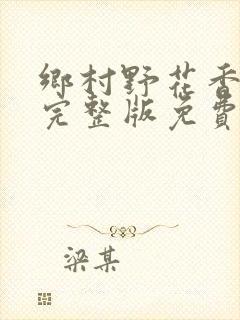 鄉村野花香
完整版免費
梁某